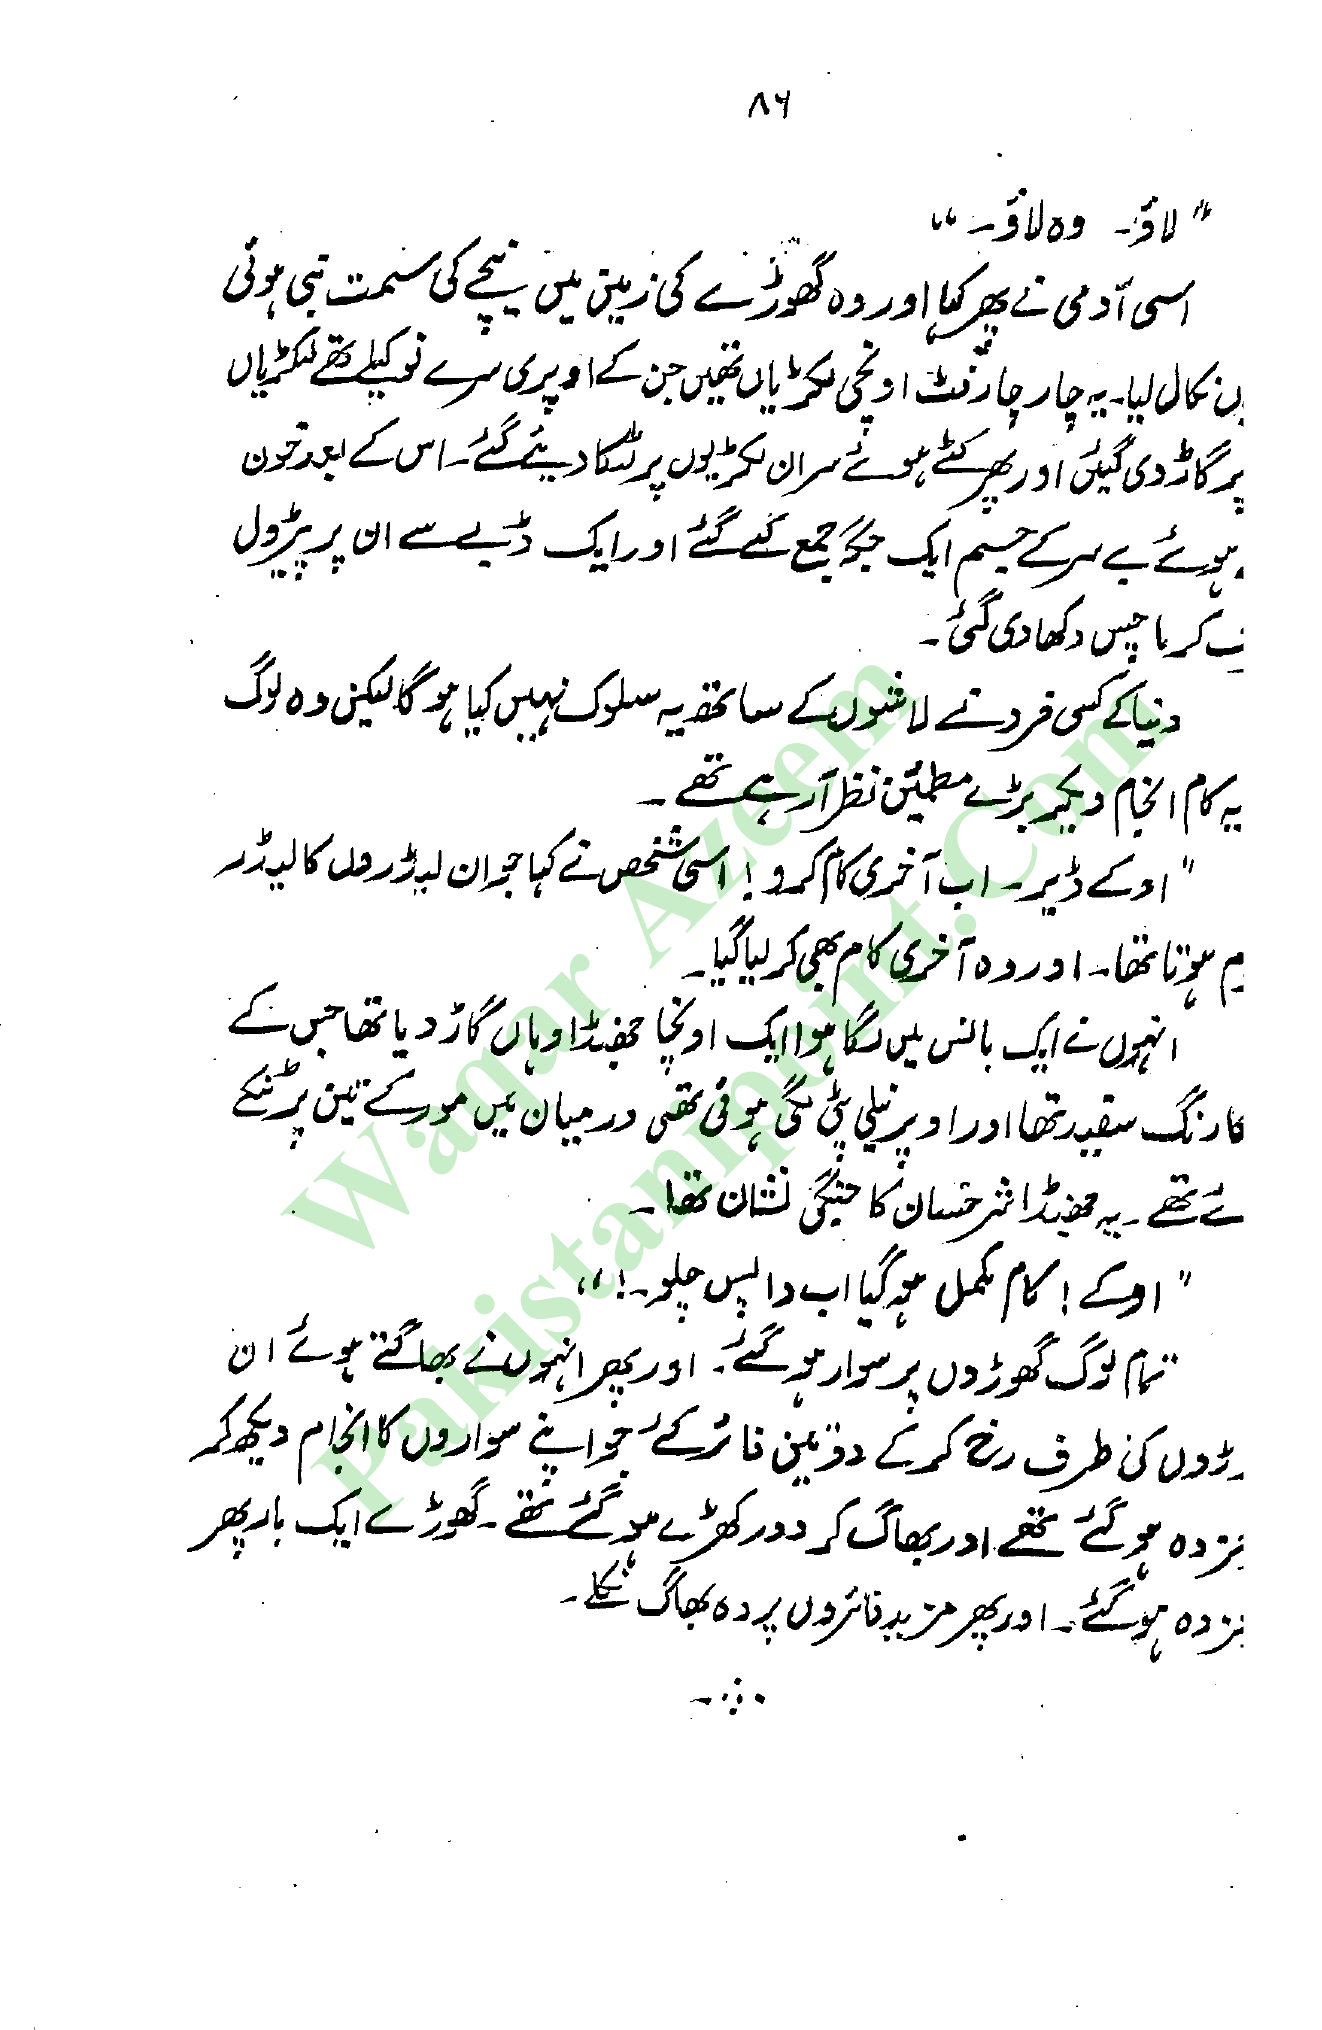 ۸۶
"لاؤ۔ وہ لاؤ۔"
اسی آدمی نے پھر کہا اور وہ گھوڑے کی زین میں نیچے کی سمت بنی ہوئی
نکال لیا۔ یہ چار چار فٹ اونچی لکڑیاں تھیں جن کے اوپری سرے نوکیلے تھے لکڑیاں
پر گاڑ دی گئیں اور پھر کٹے ہوئے سر ان لکڑیوں پر ٹکا دیئے گئے۔ اس کے بعد خون
ہوئے بے سر کے جسم ایک جگہ جمع کئے گئے اور ایک ڈبے سے ان پر پٹرول
کر ماچس دکھا دی گئی۔
دنیا کے کسی فرد نے لاشوں کے ساتھ یہ سلوک نہیں کیا ہوگا لیکن وہ لوگ
یہ کام انجام دیکر بڑے مطمئن نظر آرہے تھے۔
"اوکے ڈیر۔ اب آخری کام کرو! اسی شخص نے کہا جو ان لیڈروں کا لیڈر
م ہوتا تھا۔ اور وہ آخری کام بھی کر لیا گیا۔
انہوں نے ایک بانس میں لگا ہوا ایک اونچا جھنڈا وہاں گاڑ دیا تھا جس کے
کا رنگ سفید تھا اور اوپر نیلی پٹی لگی ہوئی تھی درمیان میں مور کے تین پر ٹنکے
ئے تھے۔ یہ جھنڈا شرحسان کا جنگی نشان تھا۔
"اوکے! کام مکمل ہو گیا اب واپس چلو۔!"
تمام لوگ گھوڑوں پر سوار ہو گئے۔ اور پھر انہوں نے بھاگتے ہوئے ان
ڑوں کی طرف رخ کر کے دو تین فائر کئے جو اپنے سواروں کا انجام دیکھ کر
زدہ ہو گئے تھے اور بھاگ کر دور کھڑے ہو گئے تھے۔ گھوڑے ایک بار پھر
زدہ ہو گئے۔ اور پھر مزید فائروں پر وہ بھاگ نکلے۔
Waqar Azeem
Pakistanipoint.Com